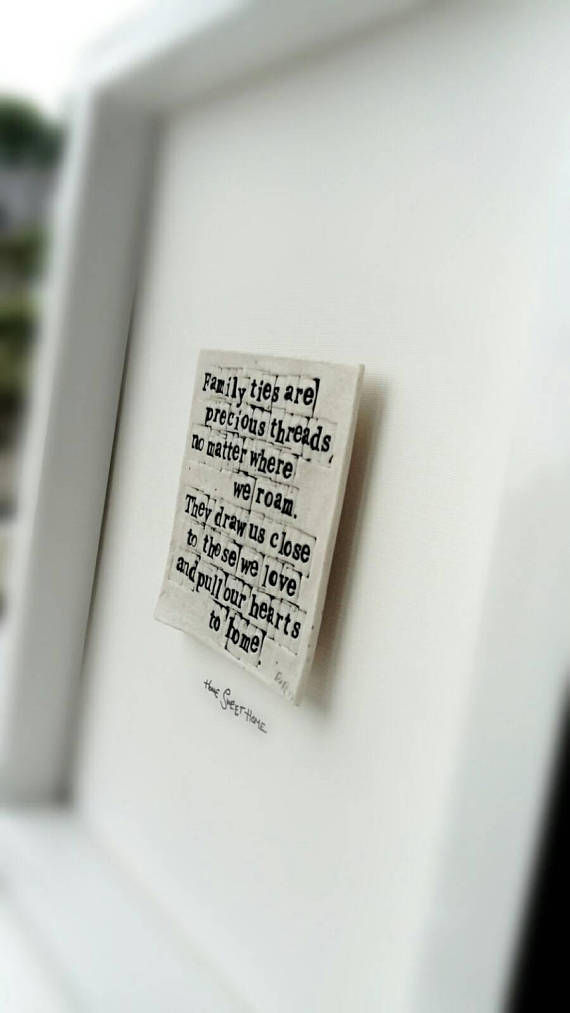 Family ties are
precious threads
no matter where
we roam.
They draw us close
to those we love
and pull our hearts
to home
Home Sweet Home